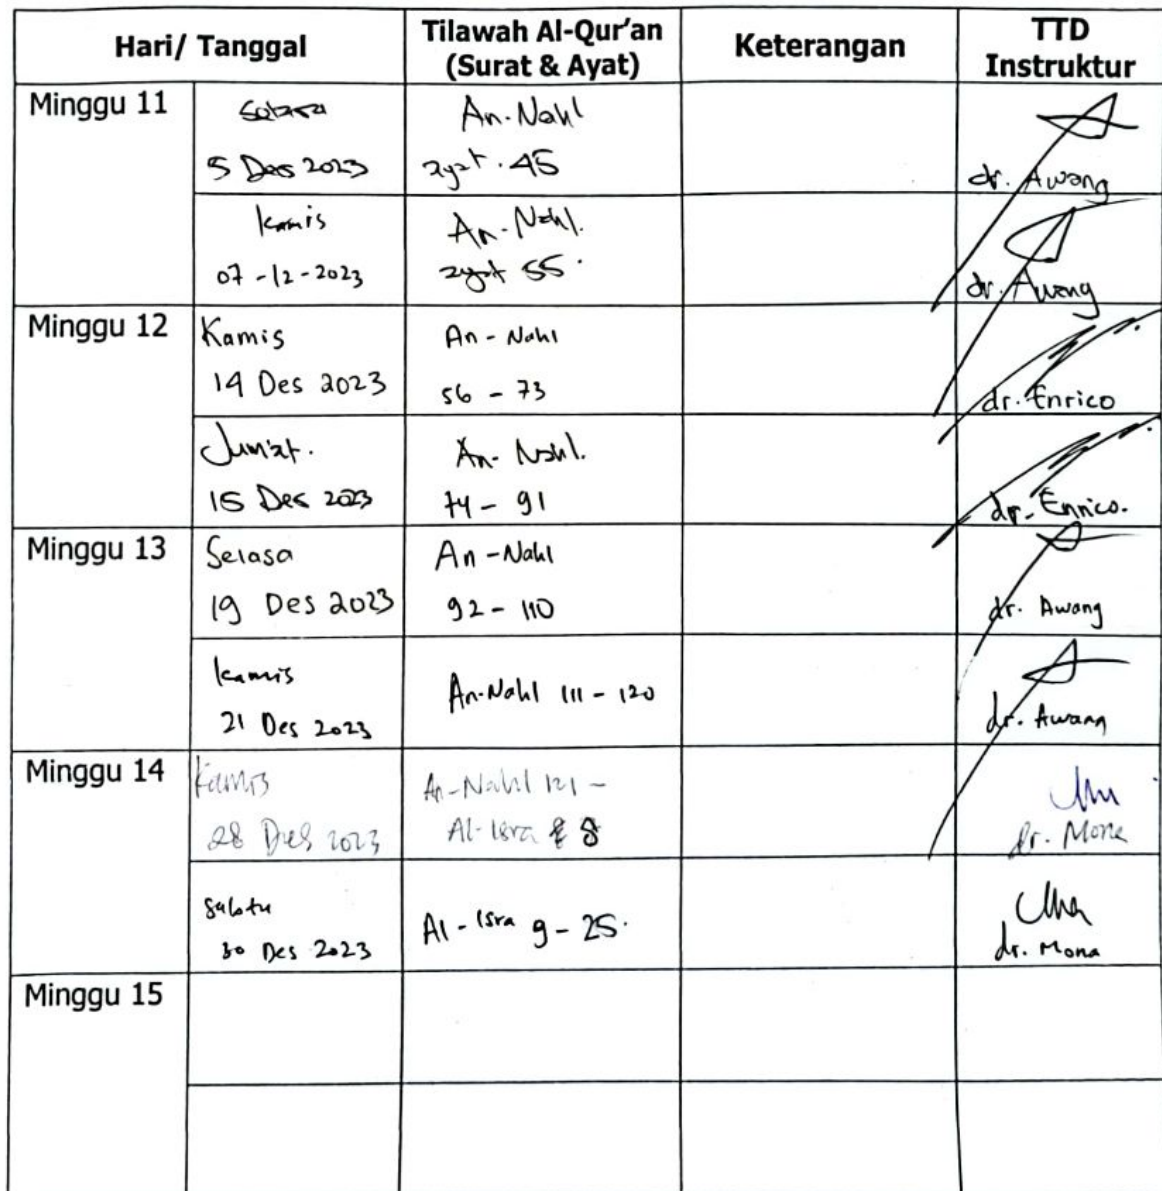 Hari/ Tanggal
Tilawah Al-Qur'an
(Surat & Ayat)
Keterangan
TTD
Instruktur
Minggu 11
Selasa
5 Des 2023
An-Nahl
ayat. 45
dr. Awang
Kamis
07-12-2023
An-Nahl.
ayat 55.
dr. Awang
Minggu 12
Kamis
14 Des 2023
An-Nahl
56 - 73
dr. Enrico
Jum'at.
15 Des 2023
An-Nahl.
74 - 91
dr. Enrico.
Minggu 13
Selasa
19 Des 2023
An-Nahl
92 - 110
dr. Awang
Kamis
21 Des 2023
An-Nahl 111 - 120
dr. Awang
Minggu 14
Kamis
28 Des 2023
An-Nahl 121 -
Al-Isra 8
dr. Mona
Sabtu
30 Des 2023
Al-Isra 9 - 25.
dr. Mona
Minggu 15